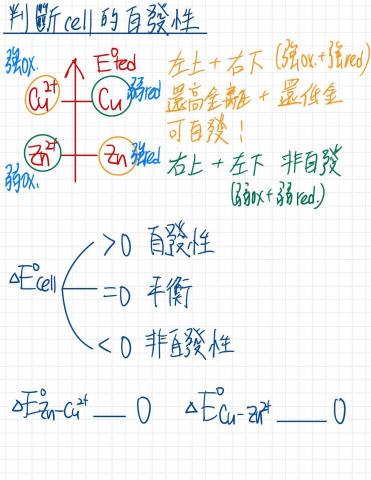 判斷cell的自發性
強ox. E°red 左上+右下 (強ox.+強red)
Cu²⁺ Cu 弱red 還高金離+還低金
可自發!
Zn²⁺ Zn 強red 右上+左下 非自發
弱ox. (弱ox+弱red.)
>0 自發性
ΔE°cell =0 平衡
<0 非自發性
ΔE°Zn-Cu²⁺ ___ 0 ΔE°Cu-Zn²⁺ ___ 0